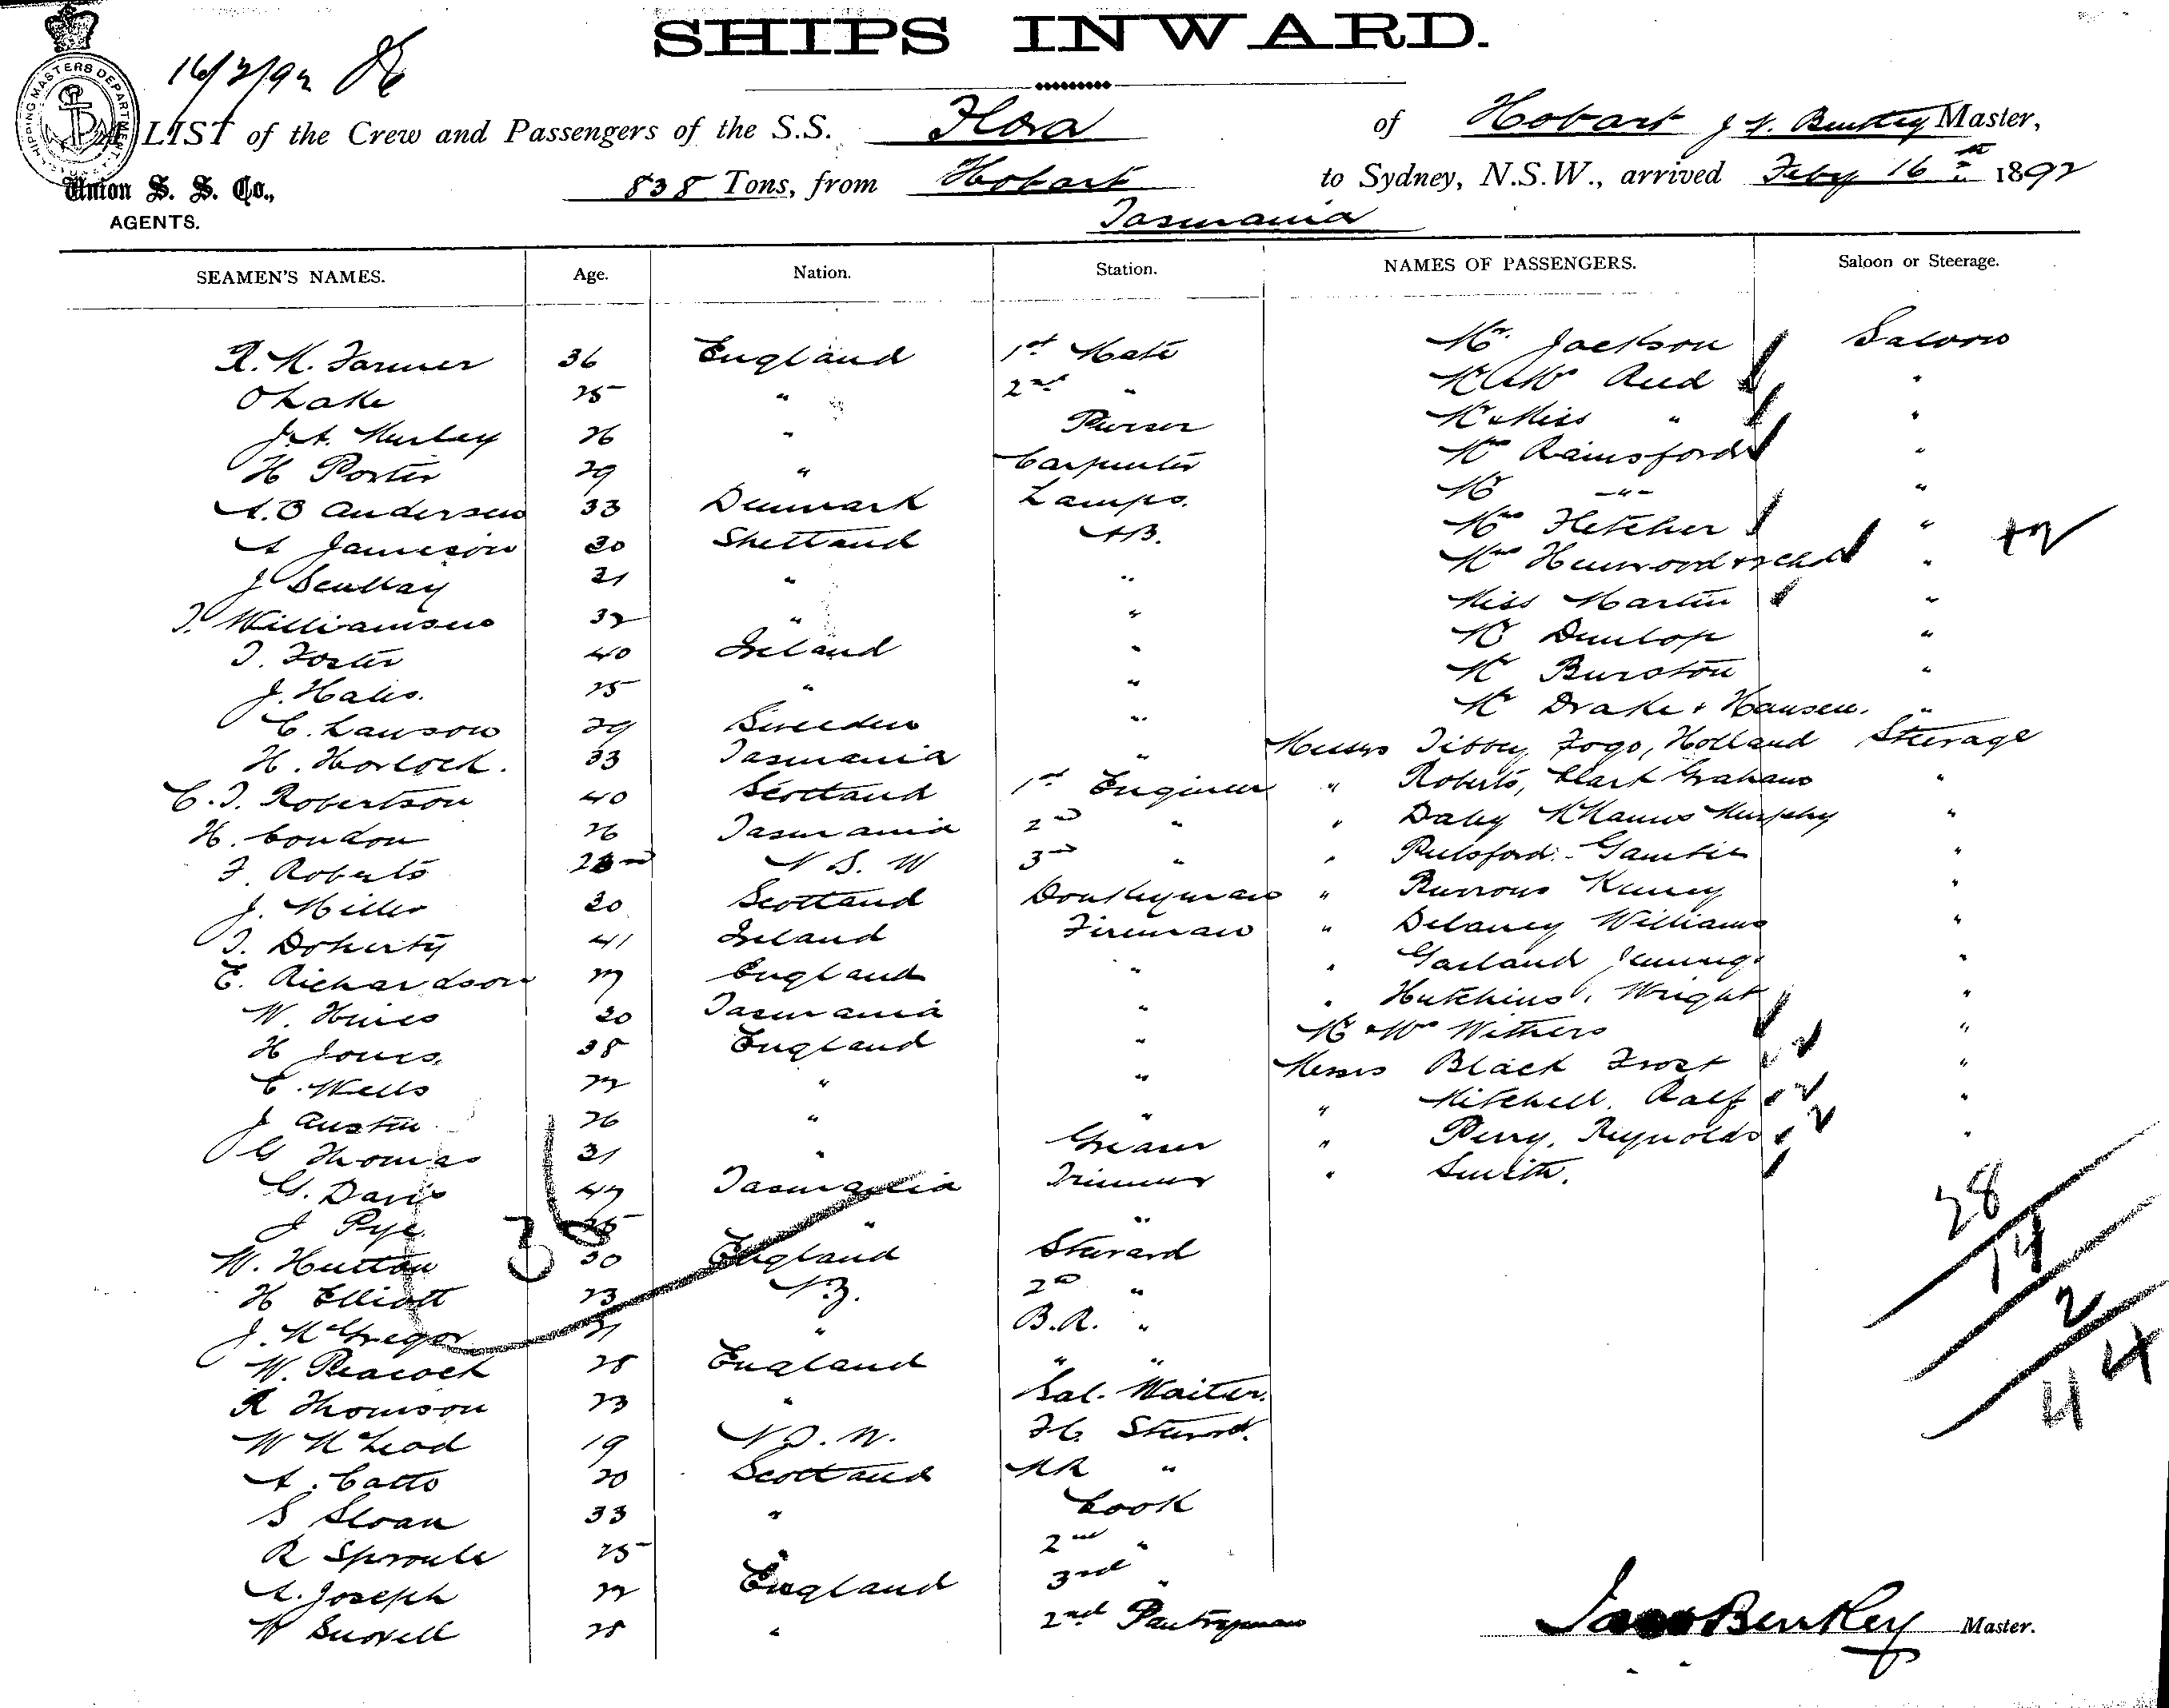 SHIPS INWARD.
16/2/92
SHIPPING MASTERS DEPARTMENT
A LIST of the Crew and Passengers of the S.S. Flora of Hobart Bentley Master,
Union S. S. Co., 838 Tons, from Hobart to Sydney, N.S.W., arrived Feby 16th 1892
AGENTS. Tasmania
SEAMEN'S NAMES. Age. Nation. Station. NAMES OF PASSENGERS. Saloon or Steerage.
R. M. Farmer 36 England 1st Mate Mr. Jackson Saloon
O Lake 25 " 2nd " Mr & Mrs Reed "
J. A. Hurley 26 " Purser Mr & Miss " "
H Porter 29 " Carpenter Mrs Rainsford "
A. O Andersen 33 Denmark Lamps. Mr -"- "
A Jamieson 30 Shetland AB. Mrs Fletcher "
J 21 " " Mrs Henwood & 2 chd " +2
T. Williamson 32 " " Miss Martin "
T. Foster 40 Ireland " Mr Dunlop "
J. Hales. 25 " " Mr Burston "
C. Lawson 29 Sweeden " Mr Drake & Hansen. "
H. Horlock. 33 Tasmania " Messrs Tibby, Fogo, Holland Steerage
C. T. Robertson 40 Scotland 1st Engineer " Roberts, Clark Graham "
H. Condon 26 Tasmania 2nd " " Daley McManus Murphy "
F. Roberts N S. W 3rd " " Pulsford Gambier "
J. Miller 30 Scotland Donkeyman " Burrows Kenny "
T. Doherty 41 Ireland Fireman " Delaney Williams "
E. Richardson 27 England " " Garland Jennings "
W. Hines 30 Tasmania " " Hutchins, Wright "
H Jones, 38 England " Mr & Mrs Withers "
C. Wells 22 " " Messrs Black Frost "
J Austin 26 " " " Mitchell. Ralf "
G Thomas 31 " Greaser " Perry, Reynolds "
G. Davis 47 Tasmania Trimmer " Smith.
J Pye 25 " "
W. Hutton 30 England Steward
H Elliott 23 N.Z. 2nd "
J. McGregor 21 " B.R. "
W. Peacock 28 England " "
R Thomson 23 " Sal. Waiter.
W McLeod 19 N.S.W. F.C. Steward.
A. Catto 20 Scotland MR "
S Sloan 33 " Cook
R Sproule 25 " 2nd "
A. Joseph 22 England 3rd "
W 28 " 2nd Pantryman
36
28
14
2
44
Jas Bentley Master.